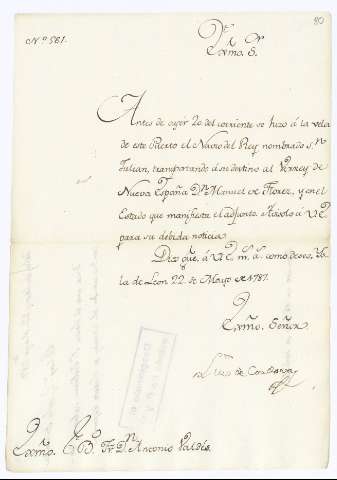 80
N.º 581.
Exmo. S.
Antes de ayer 20 del corriente se hizo á la vela
de este Puerto el Navio del Rey nombrado S.n
Julian, transportando á su destino al Virrey de
Nueva España D.n Manuel de Florez, y en el
Estado que manifiesta el adjunto Aviso lo á V.E.
para su debida noticia.
Dios gue. á V.E. m. a.s como deseo, Ys
la de Leon 22 de Mayo de 1787.
Exmo. Señor
Luis de Cordova
Exmo. S.or B.o Fr. D.n Antonio Valdés.